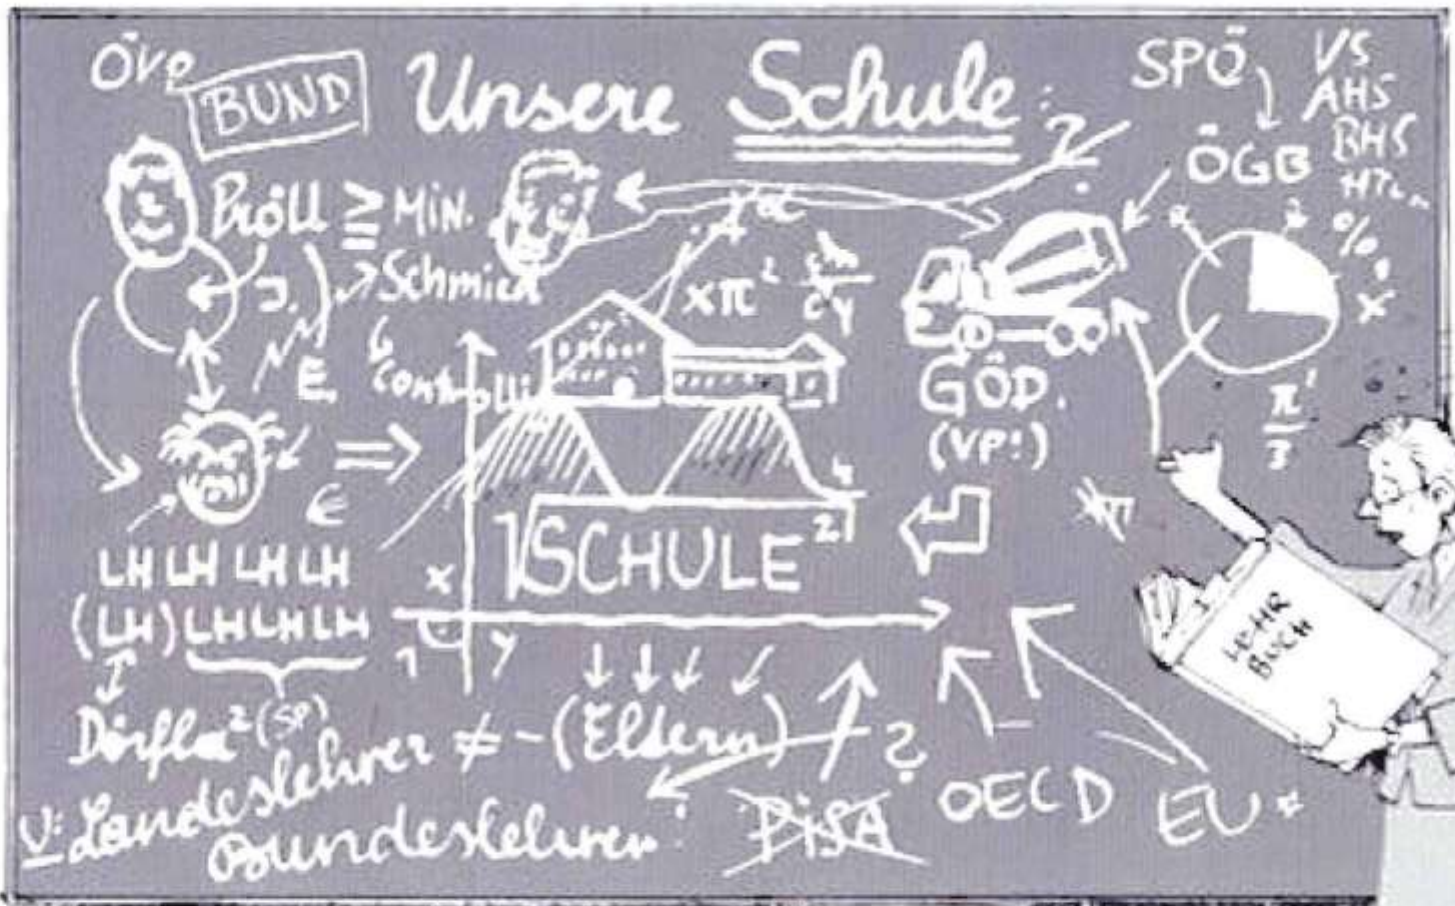 ÖVP
BUND
Unsere Schule:
SPÖ
VS
AHS
BHS
ÖGB
%
x
Pröll ≧ Min.
J.
Schmied
E.
?
α
xπ²
GÖD.
(VP!)
π²
3
€
LH LH LH LH
(LH) LH LH LH
x
y
√SCHULE²
LEHR
BUCH
(SP)
Landeslehrer ≠ - (Eltern)
Bundeslehrer:
?
PISA
OECD
EU